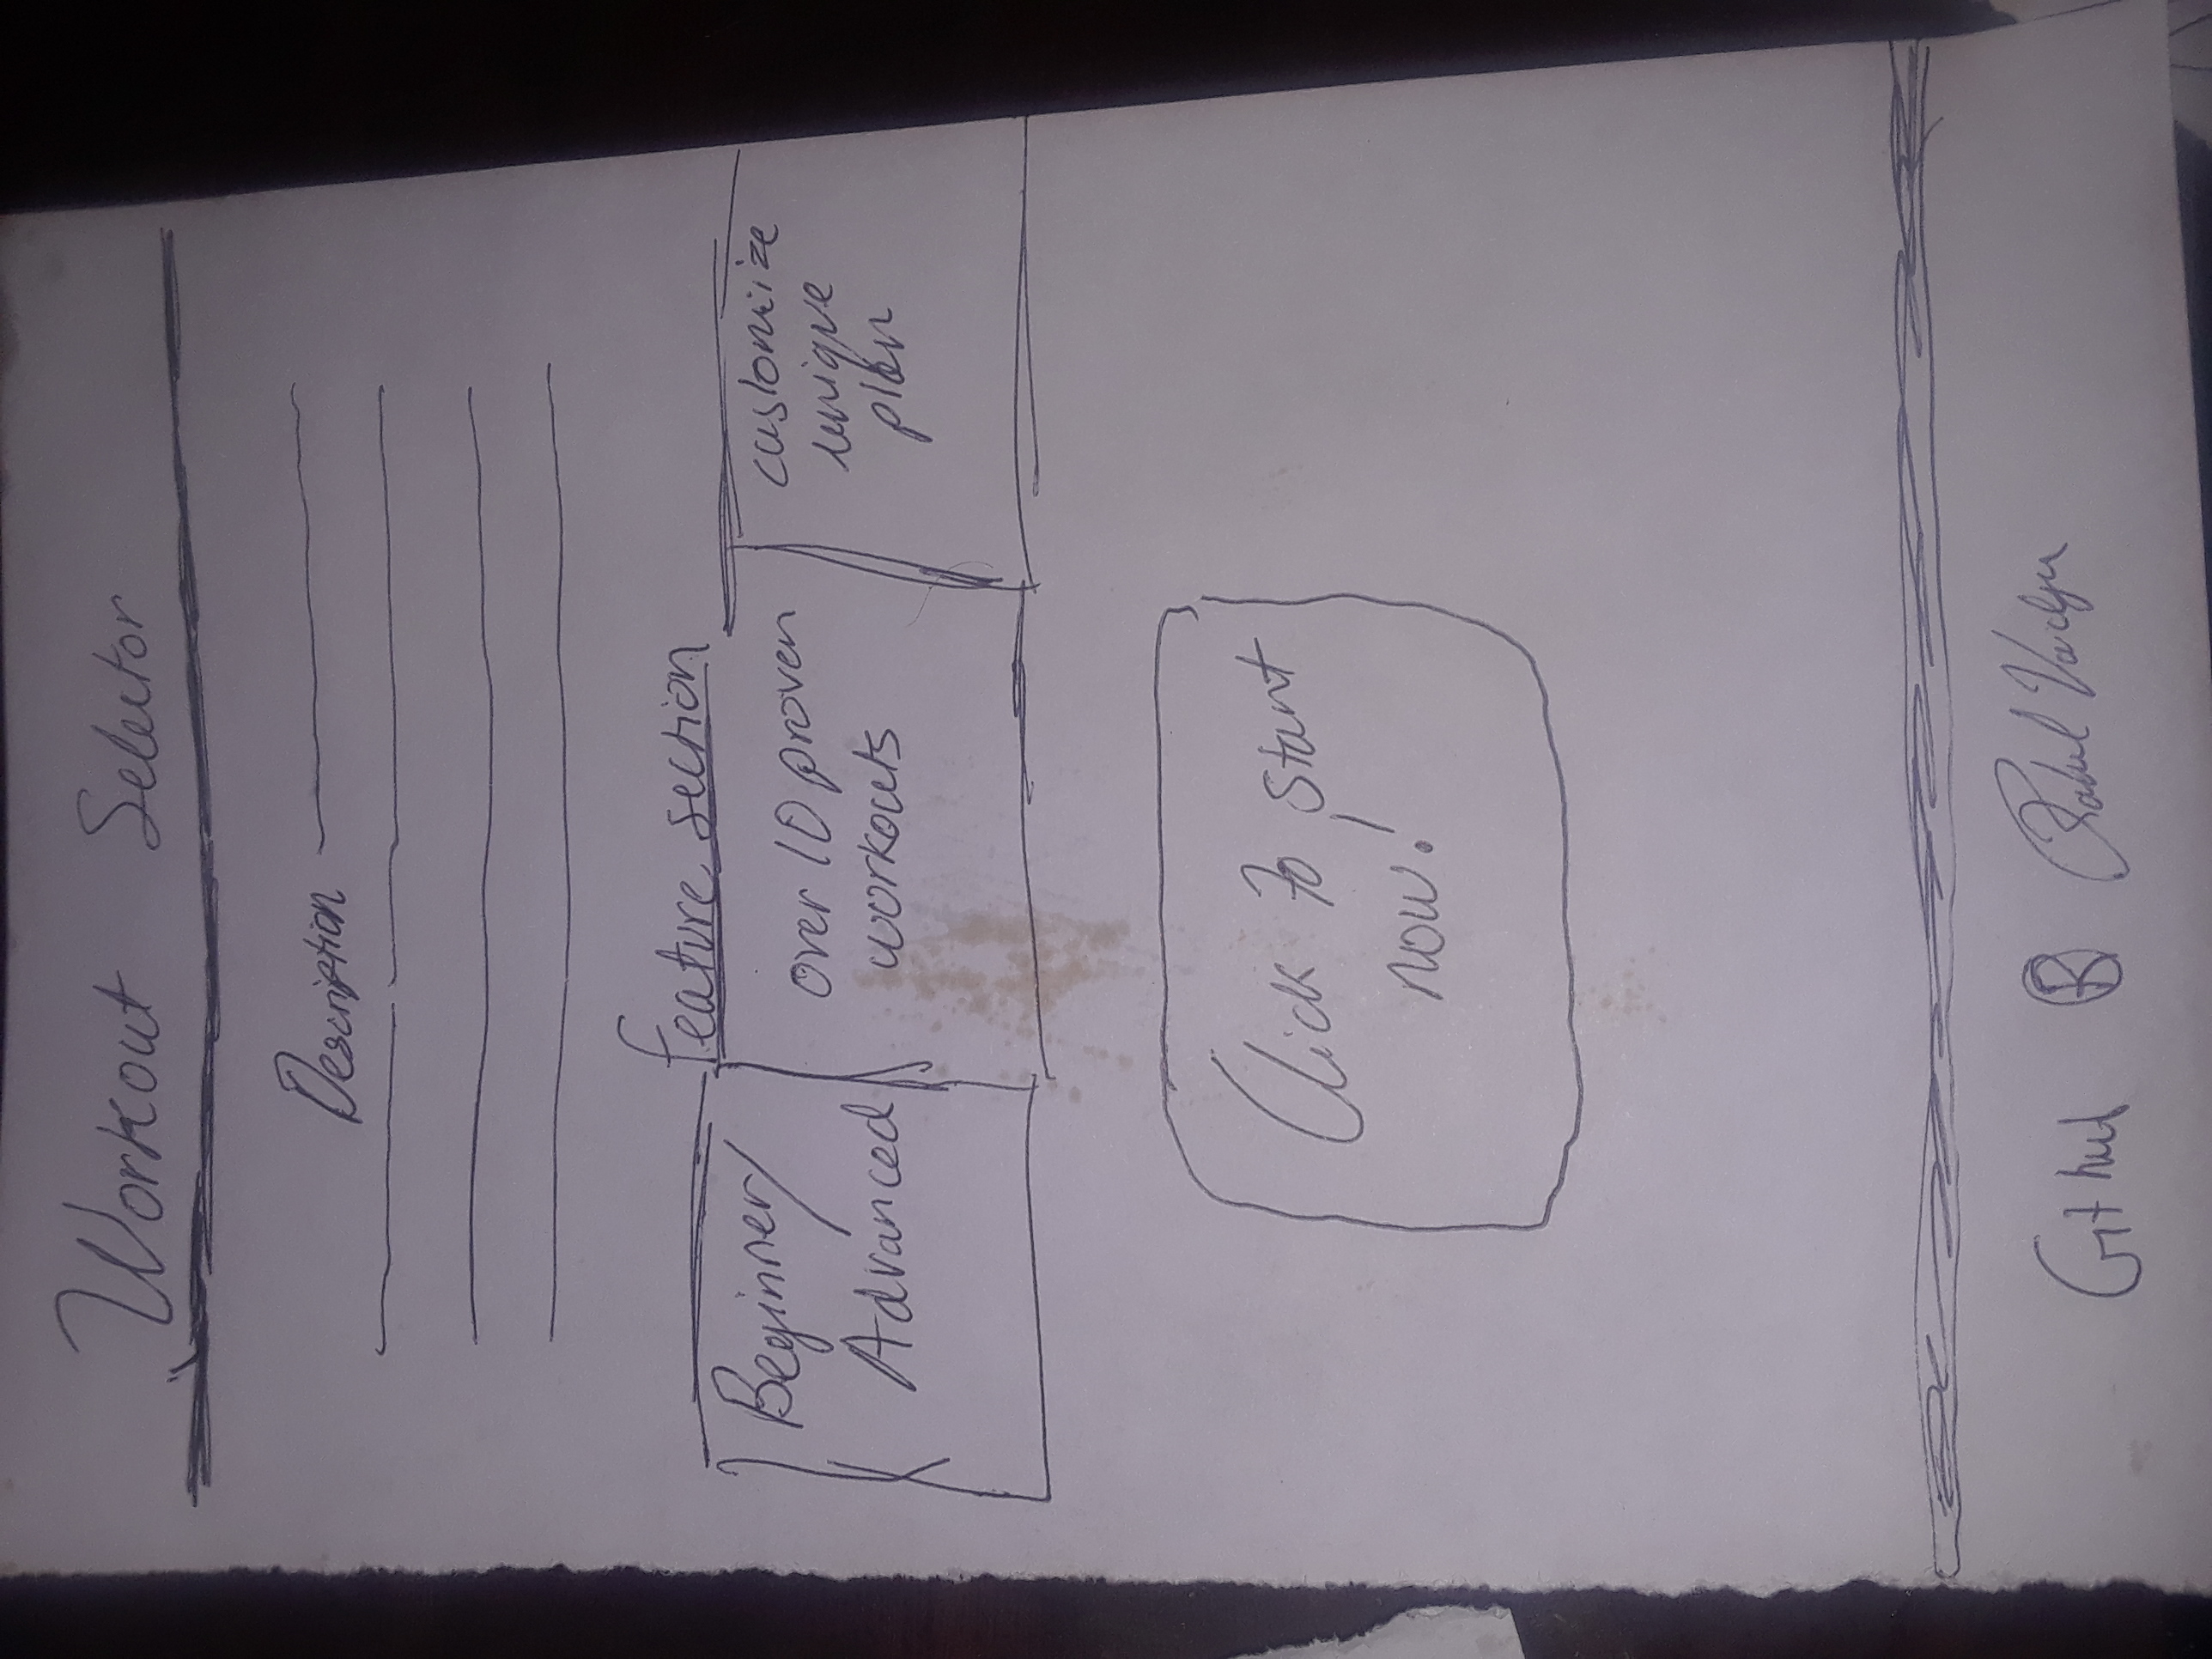 Workout Selector
Description
Feature section
Beginner/
Advanced
over 10 proven
workouts
customize
unique
plan
Click to Start
now!
Git hub ®